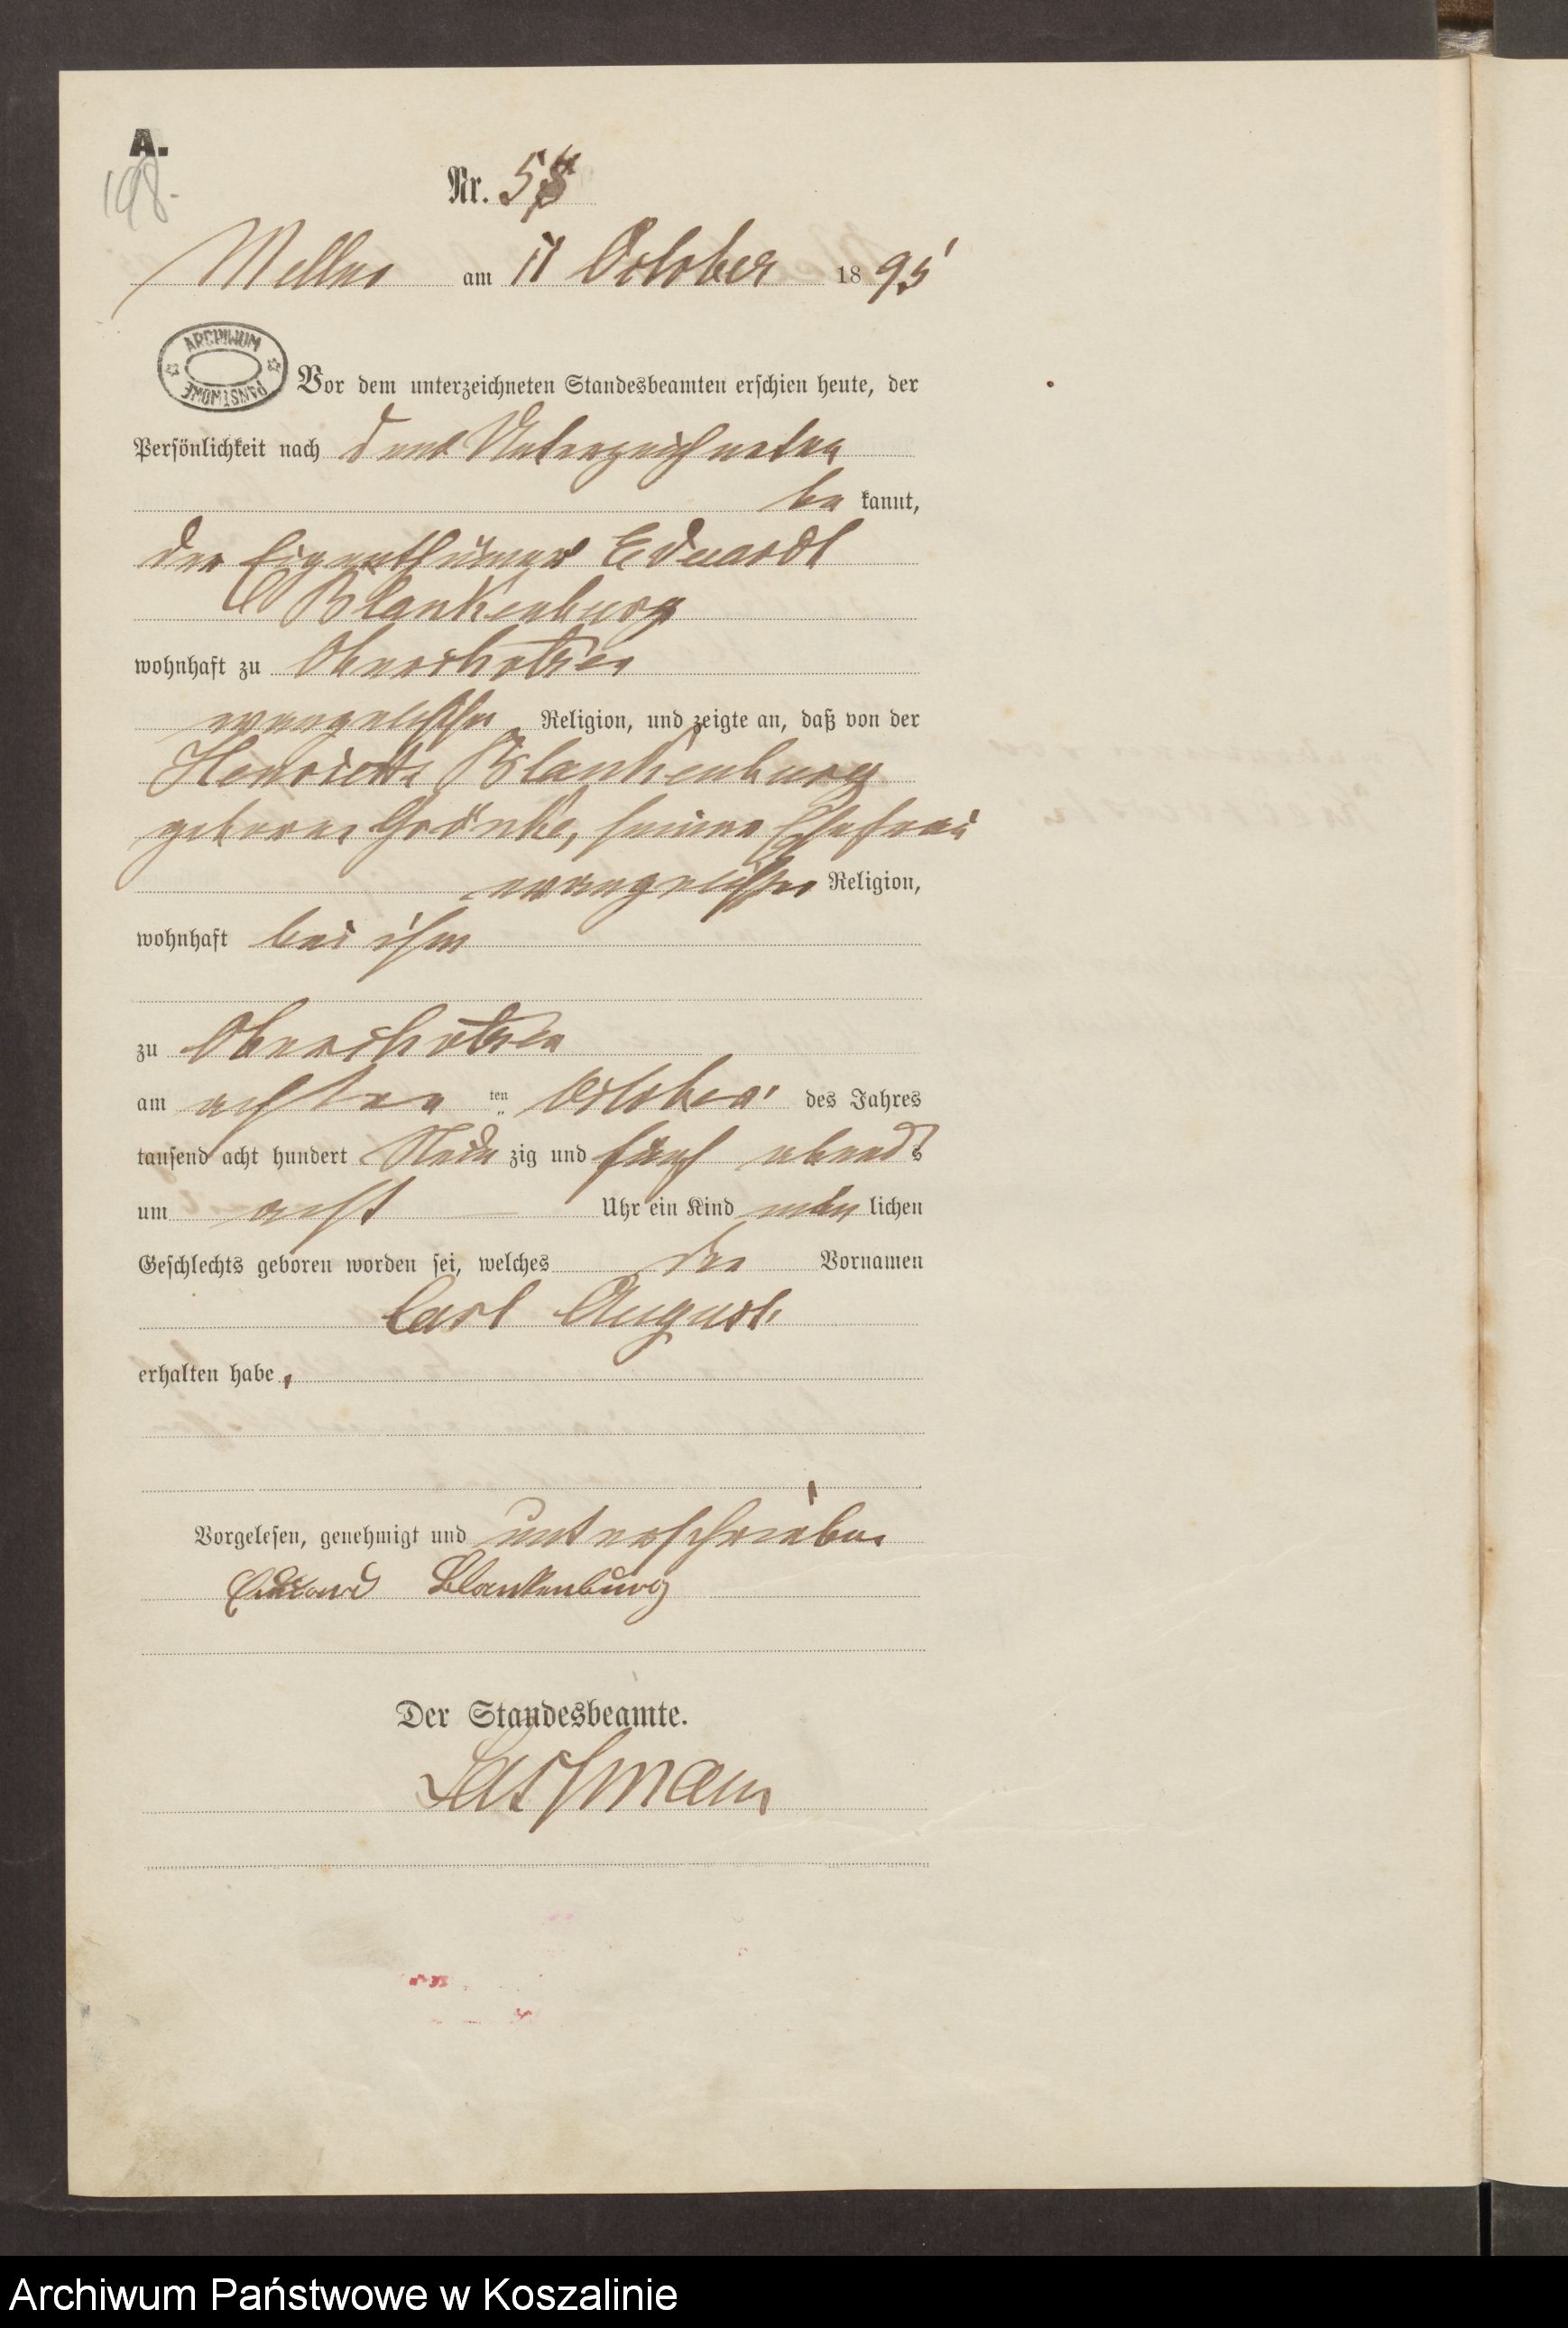 A.
198.
Nr. 58
Mellen am 11 October 1895
ARCHIWUM PAŃSTWOWE
Vor dem unterzeichneten Standesbeamten erschien heute, der
Persönlichkeit nach dem Unterzeichneten
be kannt,
der Eigenthümer Eduardt
Blankenburg
wohnhaft zu
evangelischer Religion, und zeigte an, daß von der
Henriette Blankenburg
geborne Grönke, seiner Ehefrau
evangelischer Religion,
wohnhaft bei ihm
zu
am achten ten October des Jahres
tausend acht hundert Neun zig und fünf abends
um acht Uhr ein Kind män lichen
Geschlechts geboren worden sei, welches die Vornamen
Carl August
erhalten habe,
Vorgelesen, genehmigt und unterschrieben
Eduard Blankenburg
Der Standesbeamte.
Archiwum Państwowe w Koszalinie